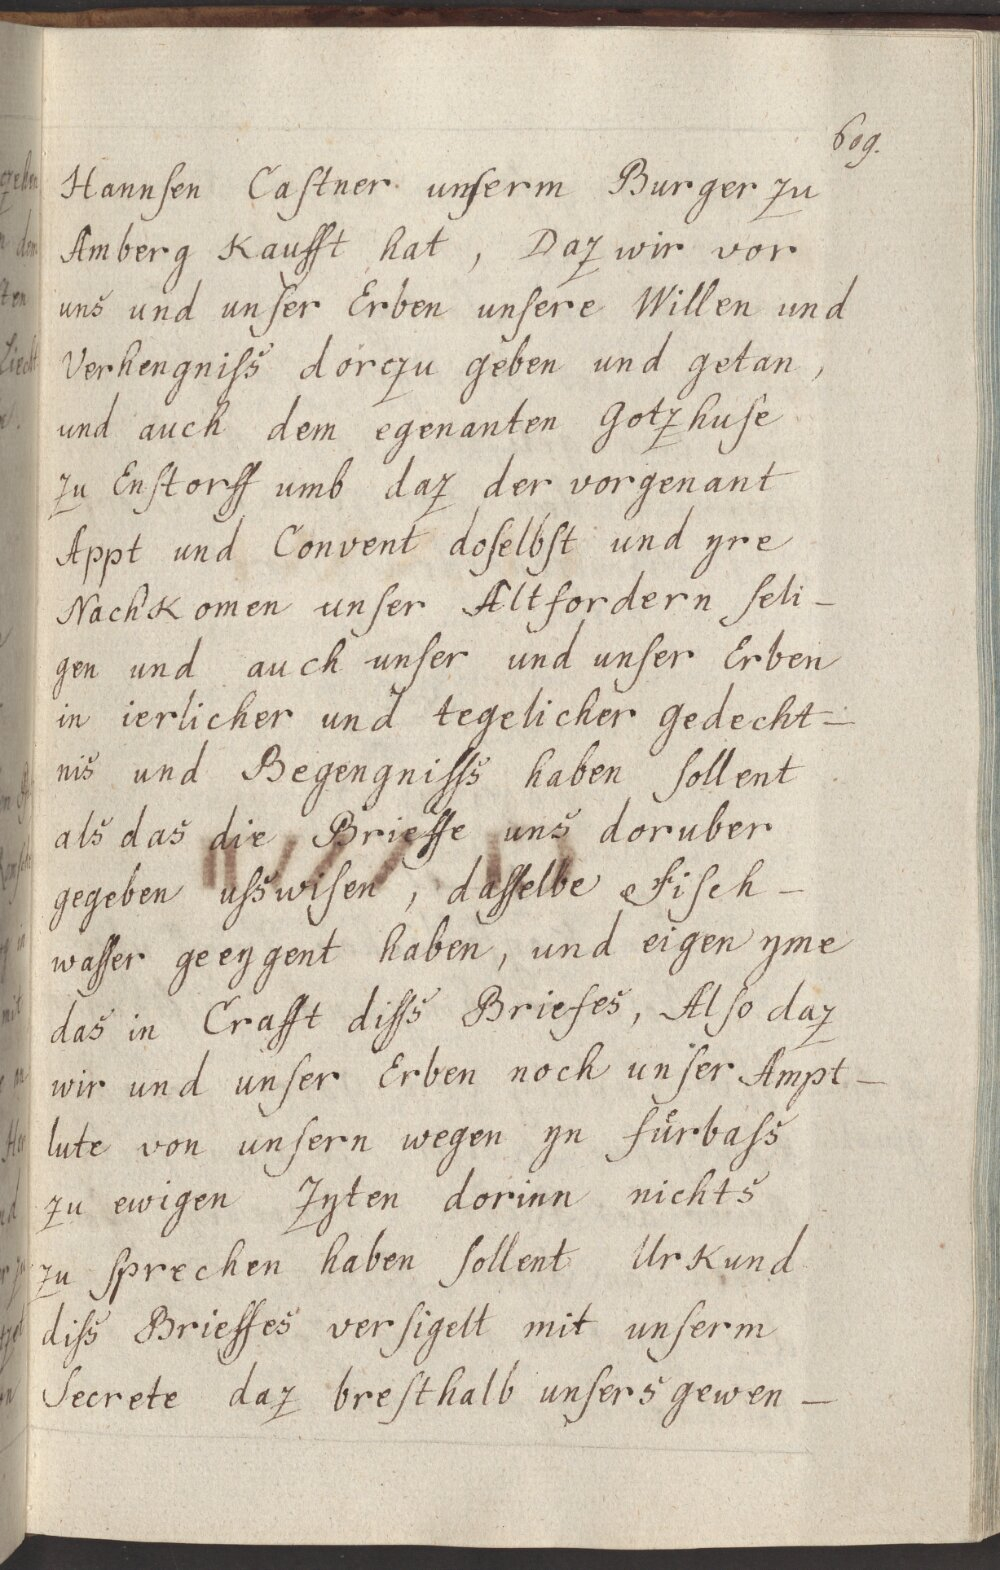 609.
Hannſen Caſtner unſerm Burger zu
Amberg Kaufft hat, Daz wir vor
uns und unſer Erben unſere Willen und
Verhengniſs dorczu geben und getan,
und auch dem egenanten Gotzhuſe
zu Enſtorff umb daz der vorgenant
Appt und Convent doſelbſt und yre
NachKomen unſer Altfordern ſeli-
gen und auch unſer und unſer Erben
in ierlicher und tegelicher gedecht-
nis und Begengniſſs haben ſollent
als das die Brieffe uns doruber
gegeben uſswiſen, daſſelbe Fiſch-
waſſer geeygent haben, und eigen yme
das in Crafft diſſs Briefes, Alſo daz
wir und unſer Erben noch unſer Ampt-
lute von unſern wegen yn fürbaſs
zu ewigen Zyten dorinn nichts
zu ſprechen haben ſollent UrKund
diſs Brieffes verſigelt mit unſerm
Secrete daz breſthalb unſers gewen-